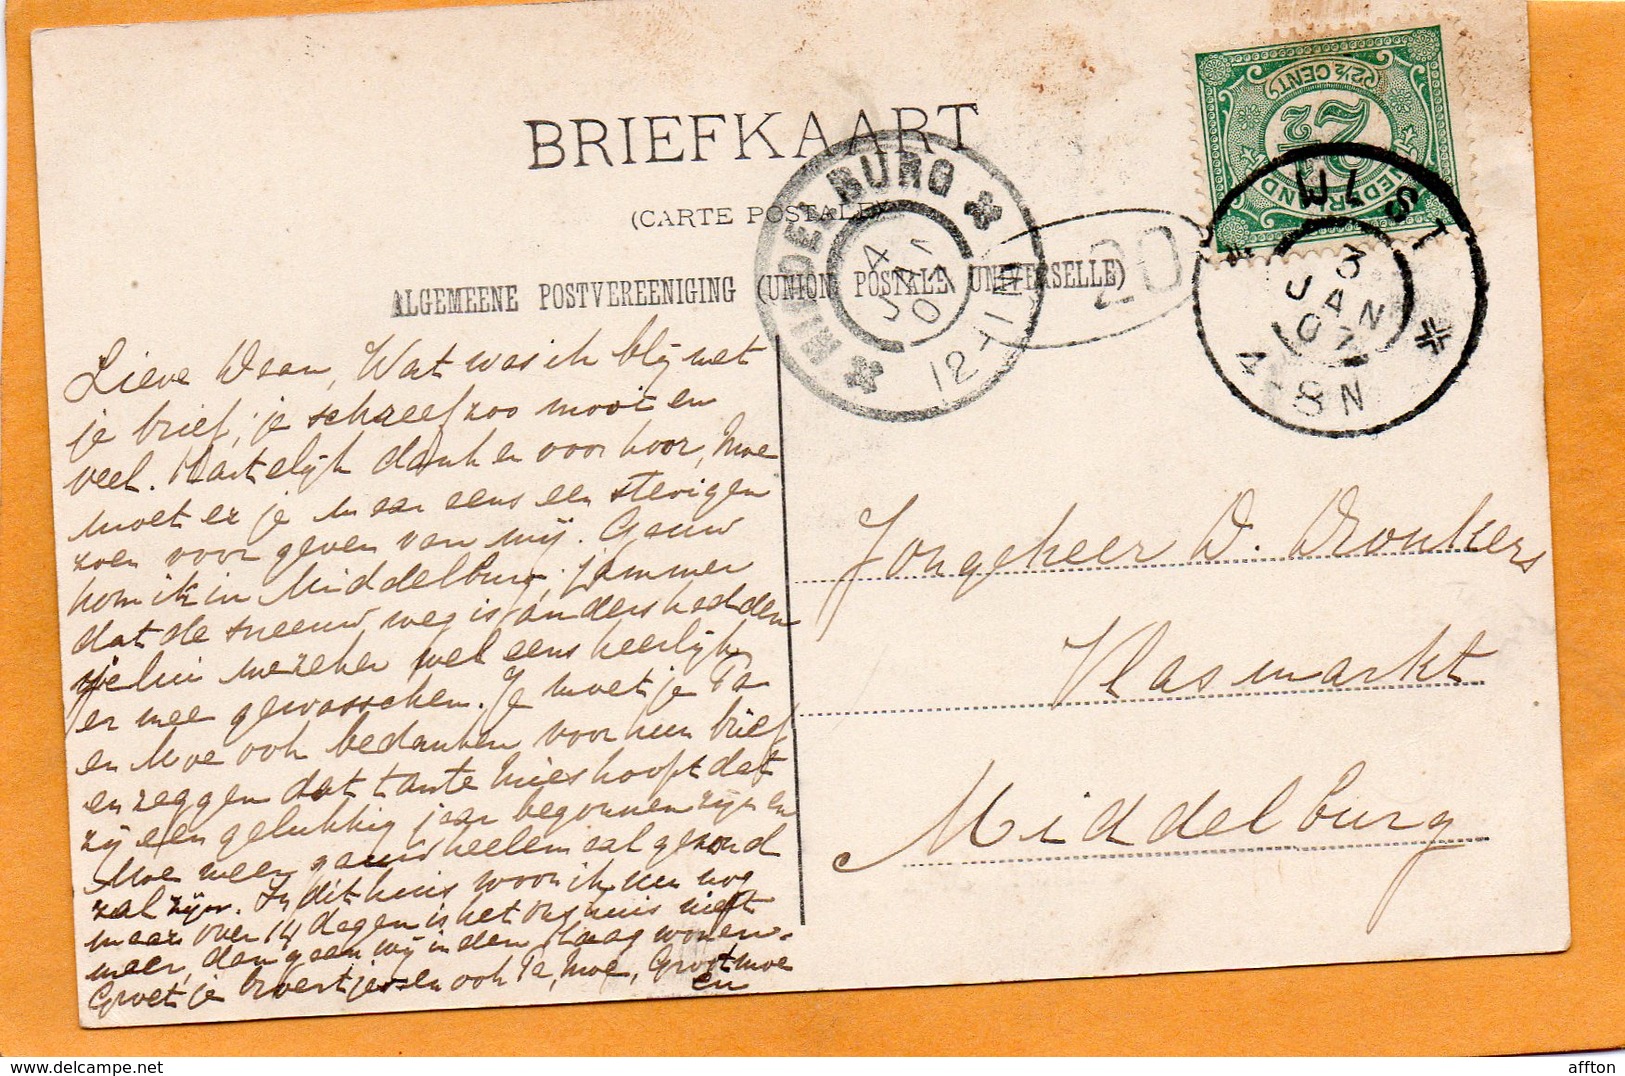 BRIEFKAART
(CARTE POSTALE)
ALGEMEENE POSTVEREENIGING (UNION POSTALE UNIVERSELLE)
MIDDELBURG
4 JAN 07
12-1N
20
NEDERLAND
2½ CENT
2½
ZEIST
3 JAN 07
4-8N
Lieve Daan, Wat was ik blij met
je brief; je schreef zoo mooi en
veel. Hartelijk danken voor hoor, Moe
moet er je maar eens een stevigen
zoen voor geven van mij. Gauw
kom ik in Middelburg, jammer
dat de sneeuw weg is, anders hadden
we zeker wel eens heerlijk
er mee gewasschen. Je moet je Pa
en Moe ook bedanken voor hun brief
en zeggen dat tante Mies hoopt dat
zij een gelukkig jaar begonnen zijn en
Moe weer gauw heelemaal gezond
zal zijn. In dit huis woon ik nu nog
maar over 14 dagen is het ons huis niet
meer, dan gaan wij in den Haag wonen.
Groet je broertjes en ook Pa, Moe, Grootmoe
en
Jongeheer D. Dronkers
Vlasmarkt
Middelburg
affton